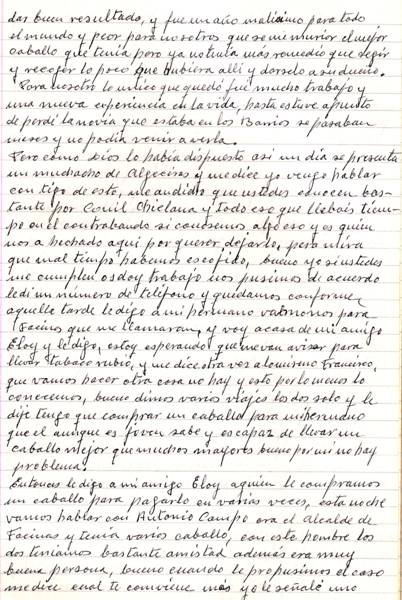 dar buen resultado, y fue un año malísimo para todo
el mundo y peor para nosotros que se me murior el mejor
caballo que tenia pero ya no tenia más remedio que segir
y recoger lo poco que hubiera alli y darselo a su dueño.
Para nosotro lo unico que quedó fue mucho trabajo y
una nueva experiencia en la vida, hasta estuve apunto
de perdé la novia que estaba en los Barrios se pasaban
meses y no podia venir a verla.
Pero como Dios lo había dispuesto asi un dia se presenta
un muchacho de Algeciras y me dice yo vengo hablar
con tigo de esto, me an dicho que ustedes conocen bas-
tante por Conil Chiclana y todo eso que llebais tiem-
po en el contrabando si conosemos algo eso y es quien
nos a hechado aqui por querer dejarlo, pero mira
que mal tiempo habemos escojido, bueno yo si ustedes
me cumplen os doy trabajo nos pusimos de acuerdo
le di un número de teléfono y quedamos conforme,
aquella tarde le digo a mi hermano vatonos para
Facinas que me llamaran, y voy a casa de mi amigo
Eloy y le digo, estoy esperando que me van avisar para
llevar tabaco rubio, y me dice otra vez a lo mismo francisco,
que vamos hacer otra cosa no hay y esto por lo menos lo
conocemos, bueno dimos varios viajes los dos solo y le
dije tengo que comprar un caballo para mi hermano
que el aunque es joven sabe y es capaz de llevar un
caballo mejor que muchos mayores bueno por mi no hay
problema.
Entonces le digo a mi amigo Eloy aquien le compramos
un caballo para pagarlo en varias veces, esta noche
vamos hablar con Antonio Campo era el Alcalde de
Facinas y tenia varios caballo, con este hombre los
dos teniamos bastante amistad además era muy
buena persona, bueno cuando le propusimos el caso
me dice cual te conviene más yo le señalé uno